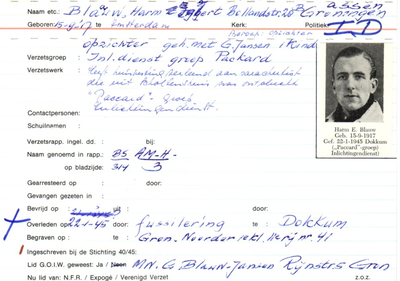 Naam etc.: Blauw, Harm Egbert Hollandstr. 20B Groningen
Assen
Geboren: 15-9-17 te Amsterdam Kerk: Politiek:
Beroep: opzichter ID
opzichter geh. met G. Jansen 1 Kind
Verzetsgroep: Inl. dienst groep Packard
Verzetswerk
"Paccard" - Groep
Inlichtingendienst
Contactpersonen:
Schuilnaam:
Verzetsrapp. ingel. dd.: bij:
Naam genoemd in rapp.: 85 AM-H-
op bladzijde: 314 3
Gearresteerd op door:
Gevangen gezeten in
Bevrijd op door:
Overleden op 22-1-45 door: fussilering te Dokkum
Begraven op: Gron. Noorder
Ingeschreven bij de Stichting 40/45:
Lid G.O.I.W. geweest: Ja / Neen M.N. G. Blauw-Jansen Rijnstr. Gron
Nu lid van: N.F.R. / Expogé / Verenigd Verzet z.o.z.
Harm E. Blauw
Geb. 15-9-1917
Gef. 22-1-1945 Dokkum
(„Paccard"-groep)
Inlichtingendienst)